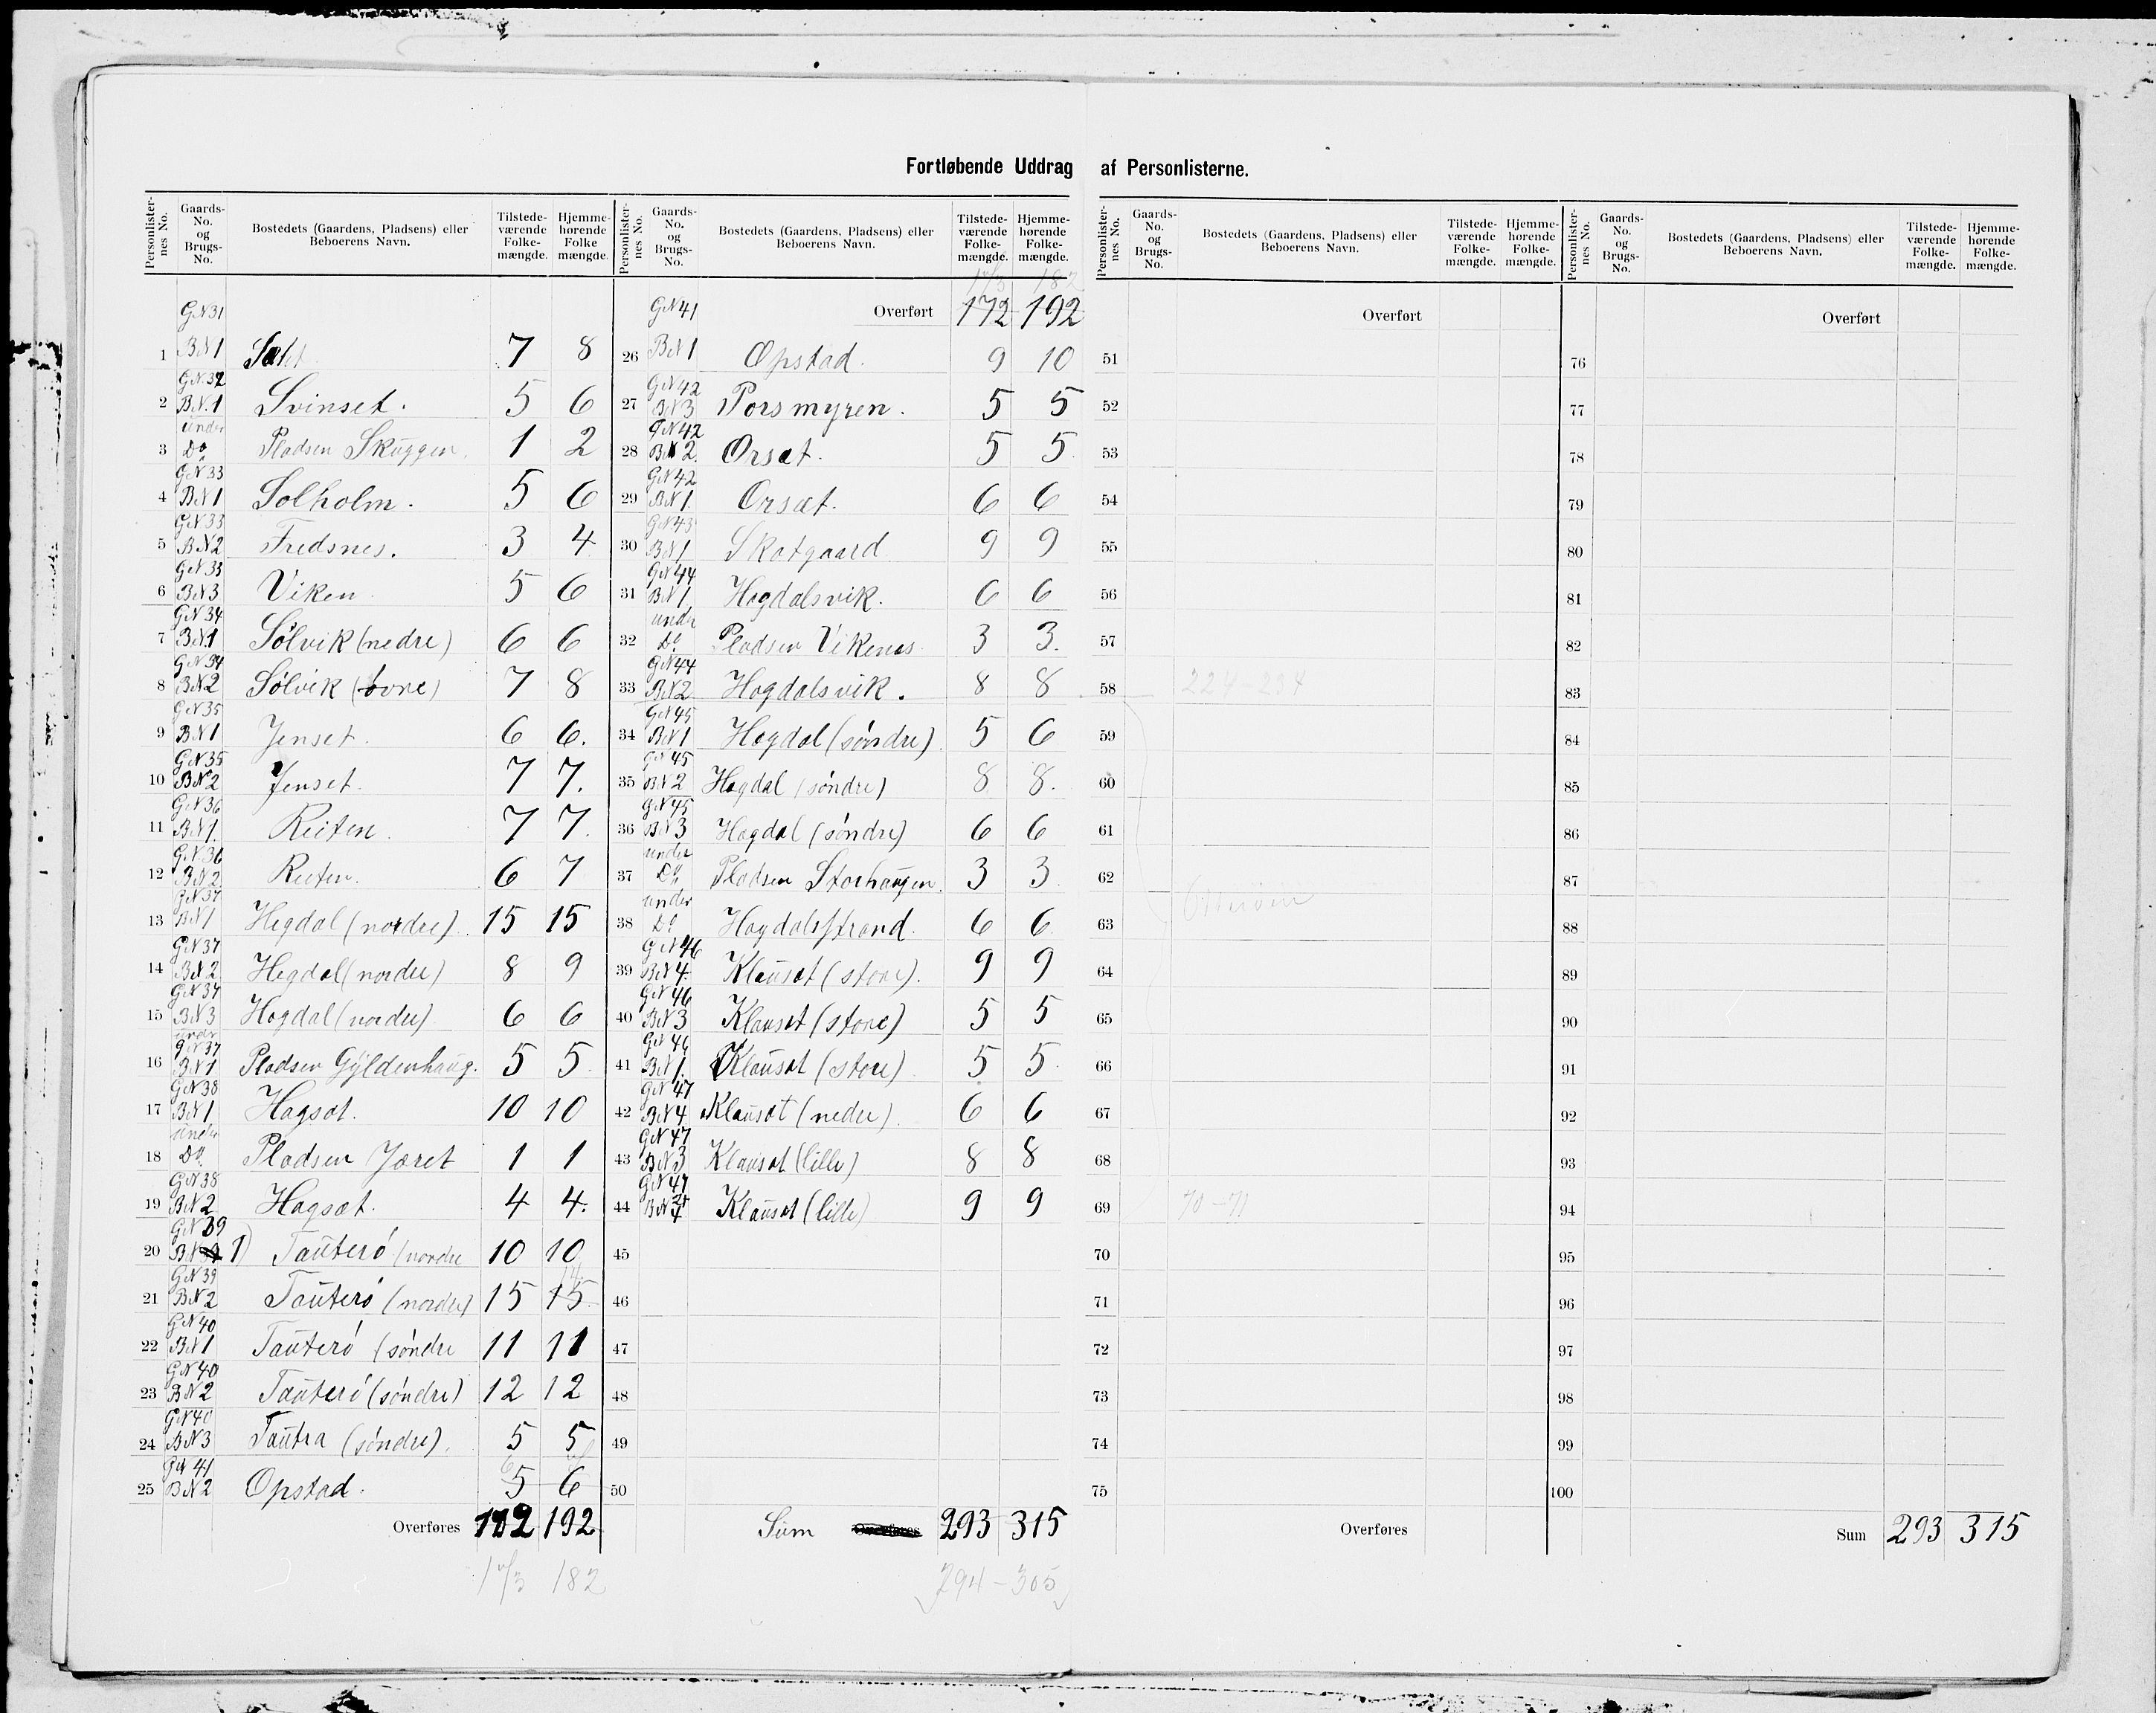 Fortløbende Uddrag af Personlisterne.
Personlister-nes No. Gaards-No. og Brugs-No. Bostedets (Gaardens, Pladsens) eller Beboerens Navn. Tilstede-værende Folke-mængde. Hjemme-hørende Folke mængde.
GN 31
1 BN 1 7 8
GN. 32
2 BN. 1 Svinset. 5 6
under
3 Do Pladsen Skuggen. 1 2
GN 33
4 BN 1 Solholm. 5 6
GN 33
5 BN 2 Fredsnes. 3 4
GN 33
6 BN 3 Viken 5 6
GN 34
7 BN. 1 Sølvik (nedre) 6 6
GN 34
8 BN 2 Sølvik (øvre) 7 8
GN 35
9 BN 1 Jenset. 6 6.
GN 35
10 BN 2 Jenset. 7 7.
GN 36
11 BN 1. Reiten. 7 7.
GN. 36
12 BN 2 Reiten. 6 7
GN 37
13 BN 1 Hegdal (nordre). 15 15
GN 37
14 BN 2 Hegdal (nordre) 8 9
GN 37
15 BN 3 Hogdal (nordre) 6 6
under
GN 37
16 BN 1 Pladsen Gyldenhaug. 5 5
GN 38
17 BN 1 Hagsæt. 10 10
under
18 Do Pladsen Jæret 1 1
GN 38
19 BN 2 Hagsæt. 4 4.
GN 39
20 BN 1) Tauterø (nordre 10 10
GN 39
21 BN 2 Tauterø (nordre) 15 15
GN 40
22 BN 1 Tauterø (søndre 11 11
GN 40
23 BN 2 Tauterø (søndre) 12 12
GN 40
24 BN 3 Tautra (søndre). 5 5
GN 41
25 BN 2 Opstad. 5 6
Overføres 192
173 182
Personlister-nes No. Gaards-No. og Brugs-No. Bostedets (Gaardens, Pladsens) eller Beboerens Navn. Tilstede-værende Folke-mængde. Hjemme-hørende Folke-mængde.
173 182
GN 41 Overført 172 192
26 BN 1 Opstad. 9 10
GN 42
27 BN 3 Porsmyren. 5 5
GN 42
28 BN 2. Orsæt. 5 5
GN 42
29 BN 1. Orsæt. 6 6
GN. 43
30 BN 1 Skotgaard 9 9
GN 44
31 BN 1. Hogdalsvik. 6 6
under
32 Do. Pladsen Vikenes 3 3.
GN 44
33 BN 2 Hogdalsvik. 8 8
GN 45
34 BN 1 Hogdal (søndre). 5 6
GN 45
35 BN 2 Hogdal (søndre) 8 8.
GN 45
36 BN 3 Hogdal (søndre) 6 6
under
37 Do Pladsen Storhaugen. 3 3
under
38 Do. Hogdalsstrand. 6 6
GN 46
39 BN 4. Klauset (store). 9 9
GN 46
40 BN 3 Klauset (store) 5 5
GN 46
41 BN 1. Klauset (store) 5 5
GN 47
42 BN 4 Klauset (nedre) 6 6
GN 47
43 BN 3 Klauset (lille) 8 8
GN 47
44 BN Klauset (lille) 9 9
45
46
47
48
49
50
Sum Overføres 293 315
294 - 305
Personlister-nes No. Gaards-No. og Brugs-No. Bostedets (Gaardens, Pladsens) eller Beboerens Navn. Tilstede-værende Folke-mængde. Hjemme-hørende Folke-mængde.
Overført
51
52
53
54
55
56
57
58 224-234
59
60
61
62
63
64
65
66
67
68
69 70-71
70
71
72
73
74
75
Overføres
Personlister-nes No. Gaards-No. og Brugs-No. Bostedets (Gaardens, Pladsens) eller Beboerens Navn. Tilstede-værende Folke-mængde. Hjemme-hørende Folke-mængde.
Overført
76
77
78
79
80
81
82
83
84
85
86
87
88
89
90
91
92
93
94
95
96
97
98
99
100
Sum 293 315